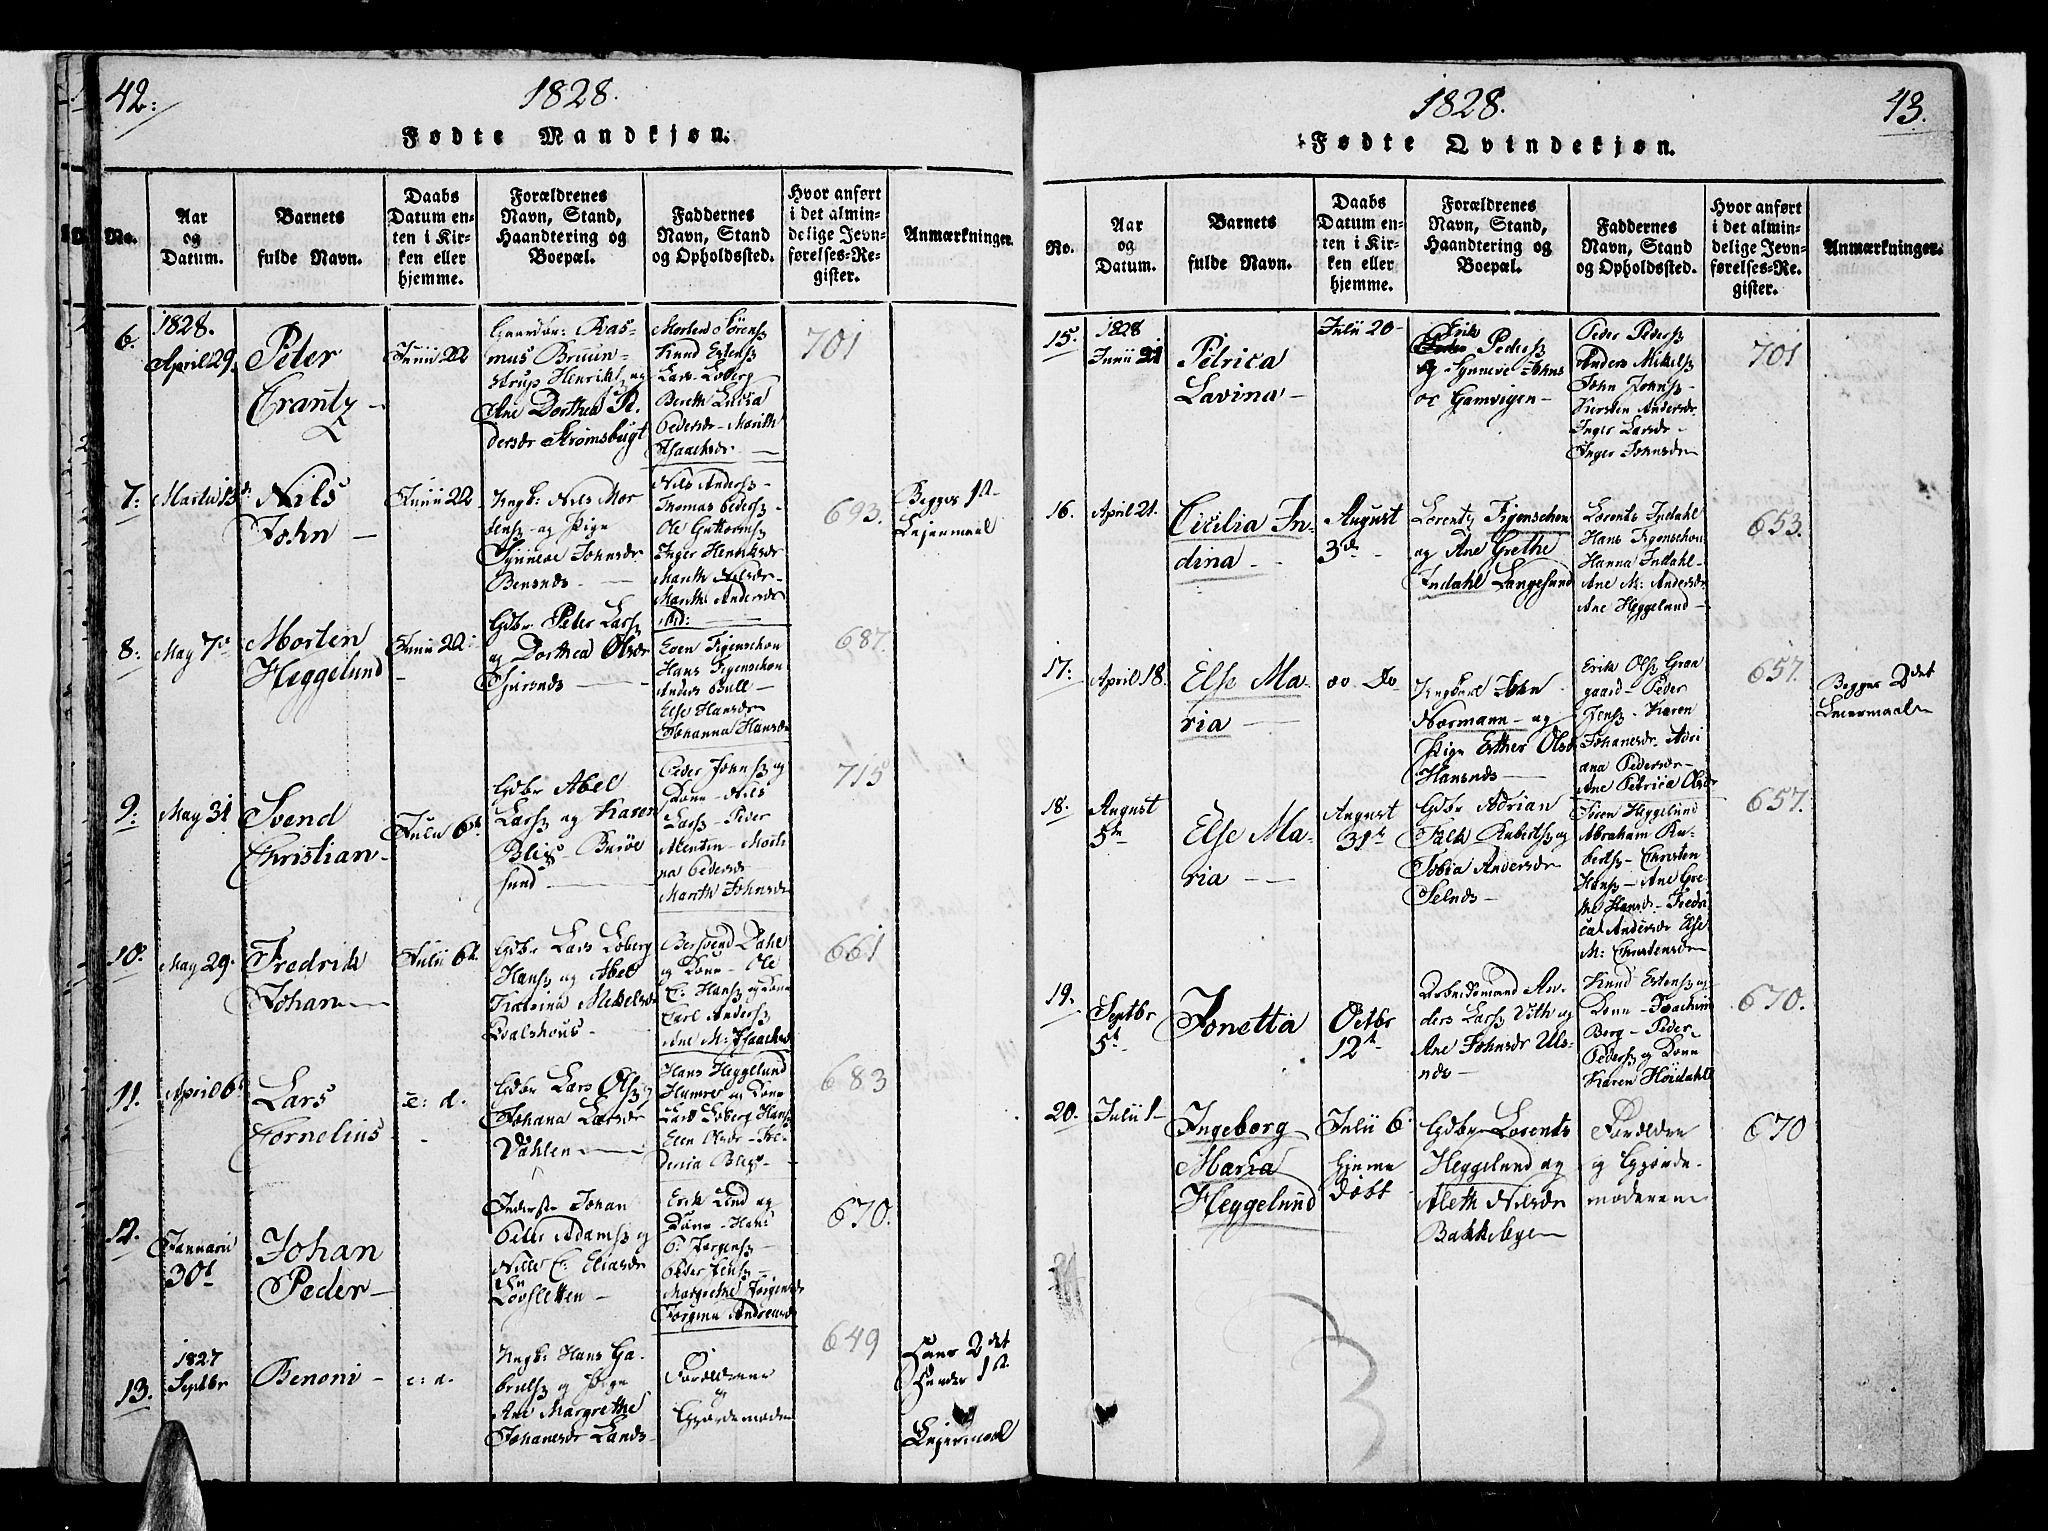 42.
1828.
Fødte Mandkjøn.
No.
Aar
og
Datum.
Barnets
fulde Navn.
Daabs
Datum en-
ten i Kir-
ken eller
hjemme.
Forældrenes
Navn, Stand,
Haandtering og
Boepæl.
Faddernes
Navn, Stand
og Opholdssted.
Hvor anført
i det almin-
delige Jevn-
førelses-Re-
gister.
Anmærkninger.
6.
1828.
April 29.
Peter
Crantz
Junii 22
Ras-
mus Bruun-
strup Henriks og
Ane Dorthea
Strømsbugt
Morten Sörens
Knud Estens
Lars Loberg
Bereth Lucia
Peders - Marith
Isaachs
701
7.
Martii 13
Nils
John
Junii 22
Ungk: Nils Mor
tens og Pige
Synneve Johns
Bensnes
Nils Anders
Thomas Peders
Ole Guttorms
Inger Henriks
Marith Nils
Marith Anders
693.
Begges 1st
Leiermaal
8.
May 7
Morten
Heggelund
Junii 22
Gdbr Peter Lars
og Dorthea Ols
Even Figenschou
Hans Figenschou
Anders Bull
Else Hans
Johanna Hans
687.
9.
May 31
Svend
Christian
Julii 6
Gdbr Abel
Lars og Karen
Blix - Buröe
sund
Peder Johns og
Kone - Nils
Lars - Peder
Peders
Marith Johns
715
10.
May 29.
Fredrik
Johan
Julii 6
Gdbr Lars Loberg
Hans og Abel
Katrina Mikkels
Kvalshous
Bersvend Dahl
og Kone - Ole
C: Hans og Kone
Carl Anders
Ane M: Isaachs
661
11.
April 6
Lars
Cornelius
e: d.
Gdbr Lars Ols og
Johana Lars
Dahlen
Hans Heggelund
Hamre og Kone
Lars Loberg Hans
Elen Ols
Blix
683
12.
Januarii
30
Johan
Peder
Inderste Johan
Peter Adams og
Nille C: Elias
Lovsletten
Erik Lind og
Kone - Hans
P: Jørgens
Peder Jens
Margrethe Jørgens
Jørgine Andreas
670.
13.
1827
Septbr
Benoni
e: d.
Ungk: Hans Ga-
briels og Pige
Ane Margrethe
Johanes Lands
Forældrene
og
Gjordemoder
649
Hans 2det
Hendes 1st
Leiermaal
1828.
43.
Fødte Qvindekjøn.
No.
Aar
og
Datum.
Barnets
fulde Navn.
Daabs
Datum en-
ten i Kir-
ken eller
hjemme.
Forældrenes
Navn, Stand,
Haandtering og
Boepæl.
Faddernes
Navn, Stand
og Opholdssted.
Hvor anført
i det almin-
delige Jevn-
førelses-Re-
gister.
Anmærkninger.
15.
1828
Junii 21
Petrica
Lavina
Julii 20
Erik
Peders
og Synneve Johns
Gamvigen
Peder Peders
Anders Mikels
John Johns
Kirsten Anders
Inger Lars
Inger Johns
701
16.
April 21.
Cicilia In-
dina
August
3
Lorentz Figenschou
og Ane Grethe
Indahl Langesund
Lorents Indahl
Hans Figenschou
Hanna Indahl
Ane M: Anders
Ane Heggelund
653.
17.
April 18.
Else Ma-
ria
Do
Ungkarl John
Normann og
Pige Esther Ols
Hansnes
Erik Ols Gran
gaard - Peder
Jens - Karen
Johanes - Adri
ana Peders
Ane Petrica Ols
657.
Begges 2det
Leiermaal
18.
August
5te
Else Ma-
ria
August
31
Gdbr Adrian
Falk Ruberts og
Tobia Anders
Selnes
Sören Heggelund
Abraham Ru-
berts - Christen
Hans - Ane Gre
the Hans - Fredri
ca Anders Else
M: Christens
657.
19.
Septbr
5
Jonetta
Octbr
12
Arbeidsmand An-
ders Lars Vith og
Ane Johns Uls-
nes
Knud Estens og
Kone - Joachim
Berg - Peder
Peders og Kone
Karen Höidahl
670.
20.
Julii 1
Ingeborg
Maria
Heggelund
Julii 6
hjeme
döbt
Gdbr Lorents
Heggelund og
Aleth Nils
Bakkeleye
Forældre
og Gjorde-
moderen
670